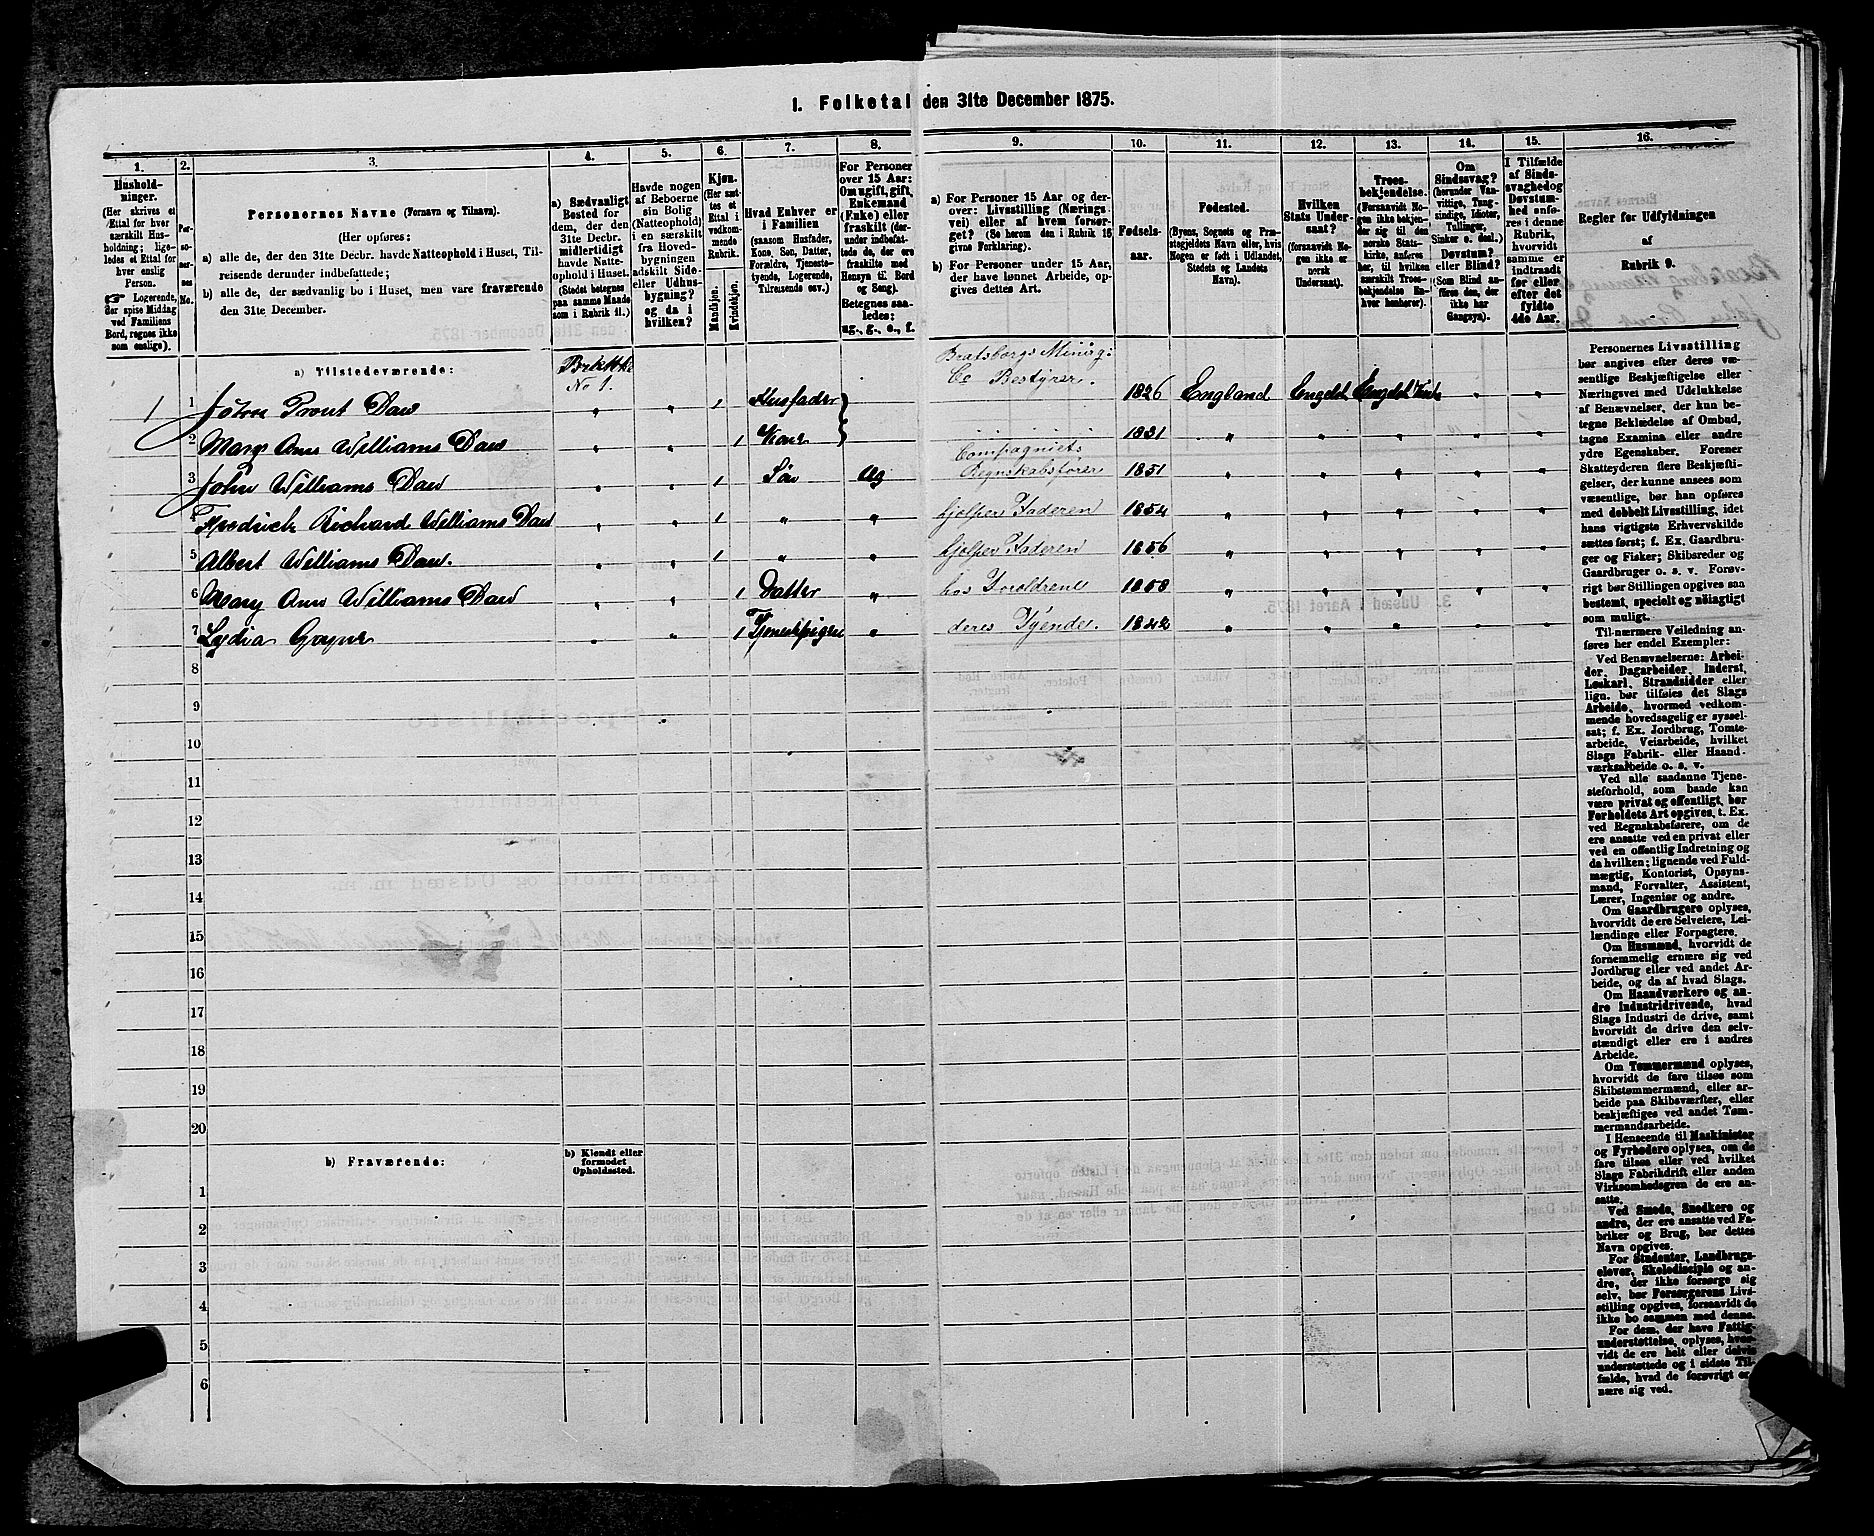 I. Folketal den 31te December 1875.
1.
Hushold-
ninger.
(Her skrives et
Ettal for hver
særskilt Hus-
holdning; lige-
ledes et Ettal for
hver enslig
Person.
Logerende,
der spise Middag
ved Familiens
Bord, regnes ikke
som enslige).
2.
Per-
so-
ner-
nes
No.
3.
Personernes Navne (Fornavn og Tilnavn).
(Her opføres:
a) alle de, der den 31te Decbr. havde Natteophold i Huset, Til-
reisende derunder indbefattede;
b) alle de, der sædvanlig bo i Huset, men vare fraværende
den 31te December.
4.
a) Sædvanligt
Bosted for
dem, der den
31te Decbr.
midlertidigt
havde Natte-
ophold i Huset.
(Stedet betegnes
paa samme Maade
som i Rubrik 11.)
5.
Havde nogen
af Beboerne
sin Bolig
(Natteophold)
i en særskilt
fra Hoved-
bygningen
adskilt Side-
eller Udhus-
bygning?
og da i
hvilken?
6.
Kjøn.
(Her sæt-
tes et
Ettal i
vedkom-
mende
Rubrik.
Mandkjøn.
Kvindekjøn.
7.
Hvad Enhver er
i Familien
(saasom Husfader,
Kone, Søn, Datter,
Forældre, Tjeneste-
tyende, Logerende,
Tilreisende osv.)
8.
For Personer
over 15 Aar:
Om ugift, gift,
Enkemand
(Enke) eller
fraskilt (der-
under indbefat-
tede de, der ere
fraskilte med
Hensyn til Bord
og Seng).
Betegnes saa-
ledes:
ug., g., e., f.
9.
a) For Personer 15 Aar og der-
over: Livsstilling (Nærings-
vei) eller af hvem forsør-
get? (Se herom den i Rubrik 16
givne Forklaring).
b) For Personer under 15 Aar,
der have lønnet Arbeide, op-
gives dettes Art.
10.
Fødsels-
aar.
11.
Fødested.
(Byens, Sognets og Præ-
stegjeldets Navn eller, hvis
Nogen er født i Udlandet,
Stedets og Landets
Navn).
12.
Hvilken
Stats Under-
saat?
(forsaavidt No-
gen ikke er
norsk
Undersaat).
13.
Troes-
bekjendelse.
(Forsaavidt No-
gen ikke bekjen-
der sig til den
norske Stats-
kirke, anføres
her, til hvilken
særskilt Troes-
bekjendelse En-
hver henhører).
14.
Om
Sindssvag?
(herunder Van-
vittige, Tung-
sindige, Idioter,
Tullinger,
Sinker o. desl.)
Døvstum?
eller Blind?
(Som Blind an-
føres den, der
ikke har
Gangsyn).
15.
I Tilfælde
af Sinds-
svaghed og
Døvstum-
hed anfø-
res i denne
Rubrik,
hvorvidt
samme er
indtraadt
før eller
efter det
fyldte
4de Aar.
16.
Regler for Udfyldningen
af
Rubrik 9.
a) Tilstedeværende:
No 1.
Bratsborgs Minirg:
Co Bestyrer.
1 1 John Prout Daw „ „ 1 Husfader 1826 England Engelsk
2 Mary Ann Williams Daw „ „ 1 Kone 1831 „ „ „ „ „
Compagniets
3 John Williams Daw „ „ 1 Søn Ug Regnskabsfører 1851 „ „ „ „ „
4 Fredrick Richard Williams Daw „ „ 1 „ „ hjelper Faderen 1854 „ „ „ „ „
5 Albert Williams Daw. „ „ 1 „ „ hjelper Faderen 1856 „ „ „ „ „
6 Mary Ann Williams Daw „ „ 1 Datter „ hos Foreldrene 1858 „ „ „ „ „
7 Lydia „ „ 1 Tjenestpigen „ deres Tyende. 1842 „ „ „ „ „
8
9
10
11
12
13
14
15
16
17
18
19
20
b) Fraværende:
b) Kjendt eller
formodet
Opholdssted.
1
2
3
4
5
6
Personernes Livsstilling
bør angives efter deres væ-
sentlige Beskjæftigelse eller
Næringsvei med Udelukkelse
af Benævnelser, der kun be-
tegne Beklædelse af Ombud,
tagne Examina eller andre
ydre Egenskaber. Forener
Skatteyderen flere Beskjæfti-
gelser, der kunne ansees som
væsentlige, bør han opføres
med dobbelt Livsstilling, idet
hans vigtigste Erhvervskilde
sættes først; f. Ex. Gaardbru-
ger og Fisker; Skibsreder og
Gaardbruger o. s. v. Forøv-
rigt bør Stillingen opgives saa
bestemt, specielt og nøiagtigt
som muligt.
Til nærmere Veiledning an-
føres her endel Exempler:
Ved Benævnelserne: Arbei-
der, Dagarbeider, Inderst,
Løskarl, Strandsidder eller
lign. bør tilføies det Slags
Arbeide, hvormed vedkom-
mende hovedsagelig er syssel-
sat; f. Ex. Jordbrug, Tomte-
arbeide, Veiarbeide, hvilket
Slags Fabrik- eller Haand-
værksarbeide o. s. v.
Ved alle saadanne Tjene-
steforhold, som baade kan
være privat og offentligt, bør
Forholdets Art opgives, t. Ex.
ved Regnskabsførere, om de
ere ansatte ved en privat eller
ved en offentlig Indretning og
da hvilken; lignende ved Fuld-
mægtig, Kontorist, Opsyns-
mand, Forvalter, Assistent,
Lærer, Ingeniør og andre.
Om Gaardbrugere oplyses,
hvorvidt de ere Selveiere, Lei-
lændinge eller Forpagtere.
Om Husmænd, hvorvidt de
fornemmelig ernære sig ved
Jordbrug eller ved andet Ar-
beide, og da af hvad Slags.
Om Haandværkere og an-
dre Industridrivende, hvad
Slags Industri de drive, samt
hvorvidt de drive den selv-
stændigt eller ere i andres
Arbeide.
Om Tømmermænd oplyses,
hvorvidt de fare tilsøs som
Skibstømmermænd, eller ar-
beide paa Skibsværfter, eller
beskjæftiges ved andet Tøm-
mermandsarbeide.
I Henseende til Maskinister
og Fyrbødere oplyses, om de
fare tilsøs eller ved hvilket
Slags Fabrikdrift eller anden
Virksomhedsgren de ere an-
satte.
Ved Smede, Snedkere og
andre, der ere ansatte ved Fa-
briker og Brug, bør dettes
Navn opgives.
For Studenter, Landbrugs-
elever, Skoledisciple og an-
dre, der ikke forsørge sig
selv, bør Forsørgerens Livs-
stilling opgives, forsaavidt de
ikke bo sammen med denne.
For dem, der have Fattig-
understøttelse, oplyses, hvor-
vidt de ere helt eller delvis
understøttede og i sidste Til-
fælde, hvad de forøvrigt er-
nære sig ved.